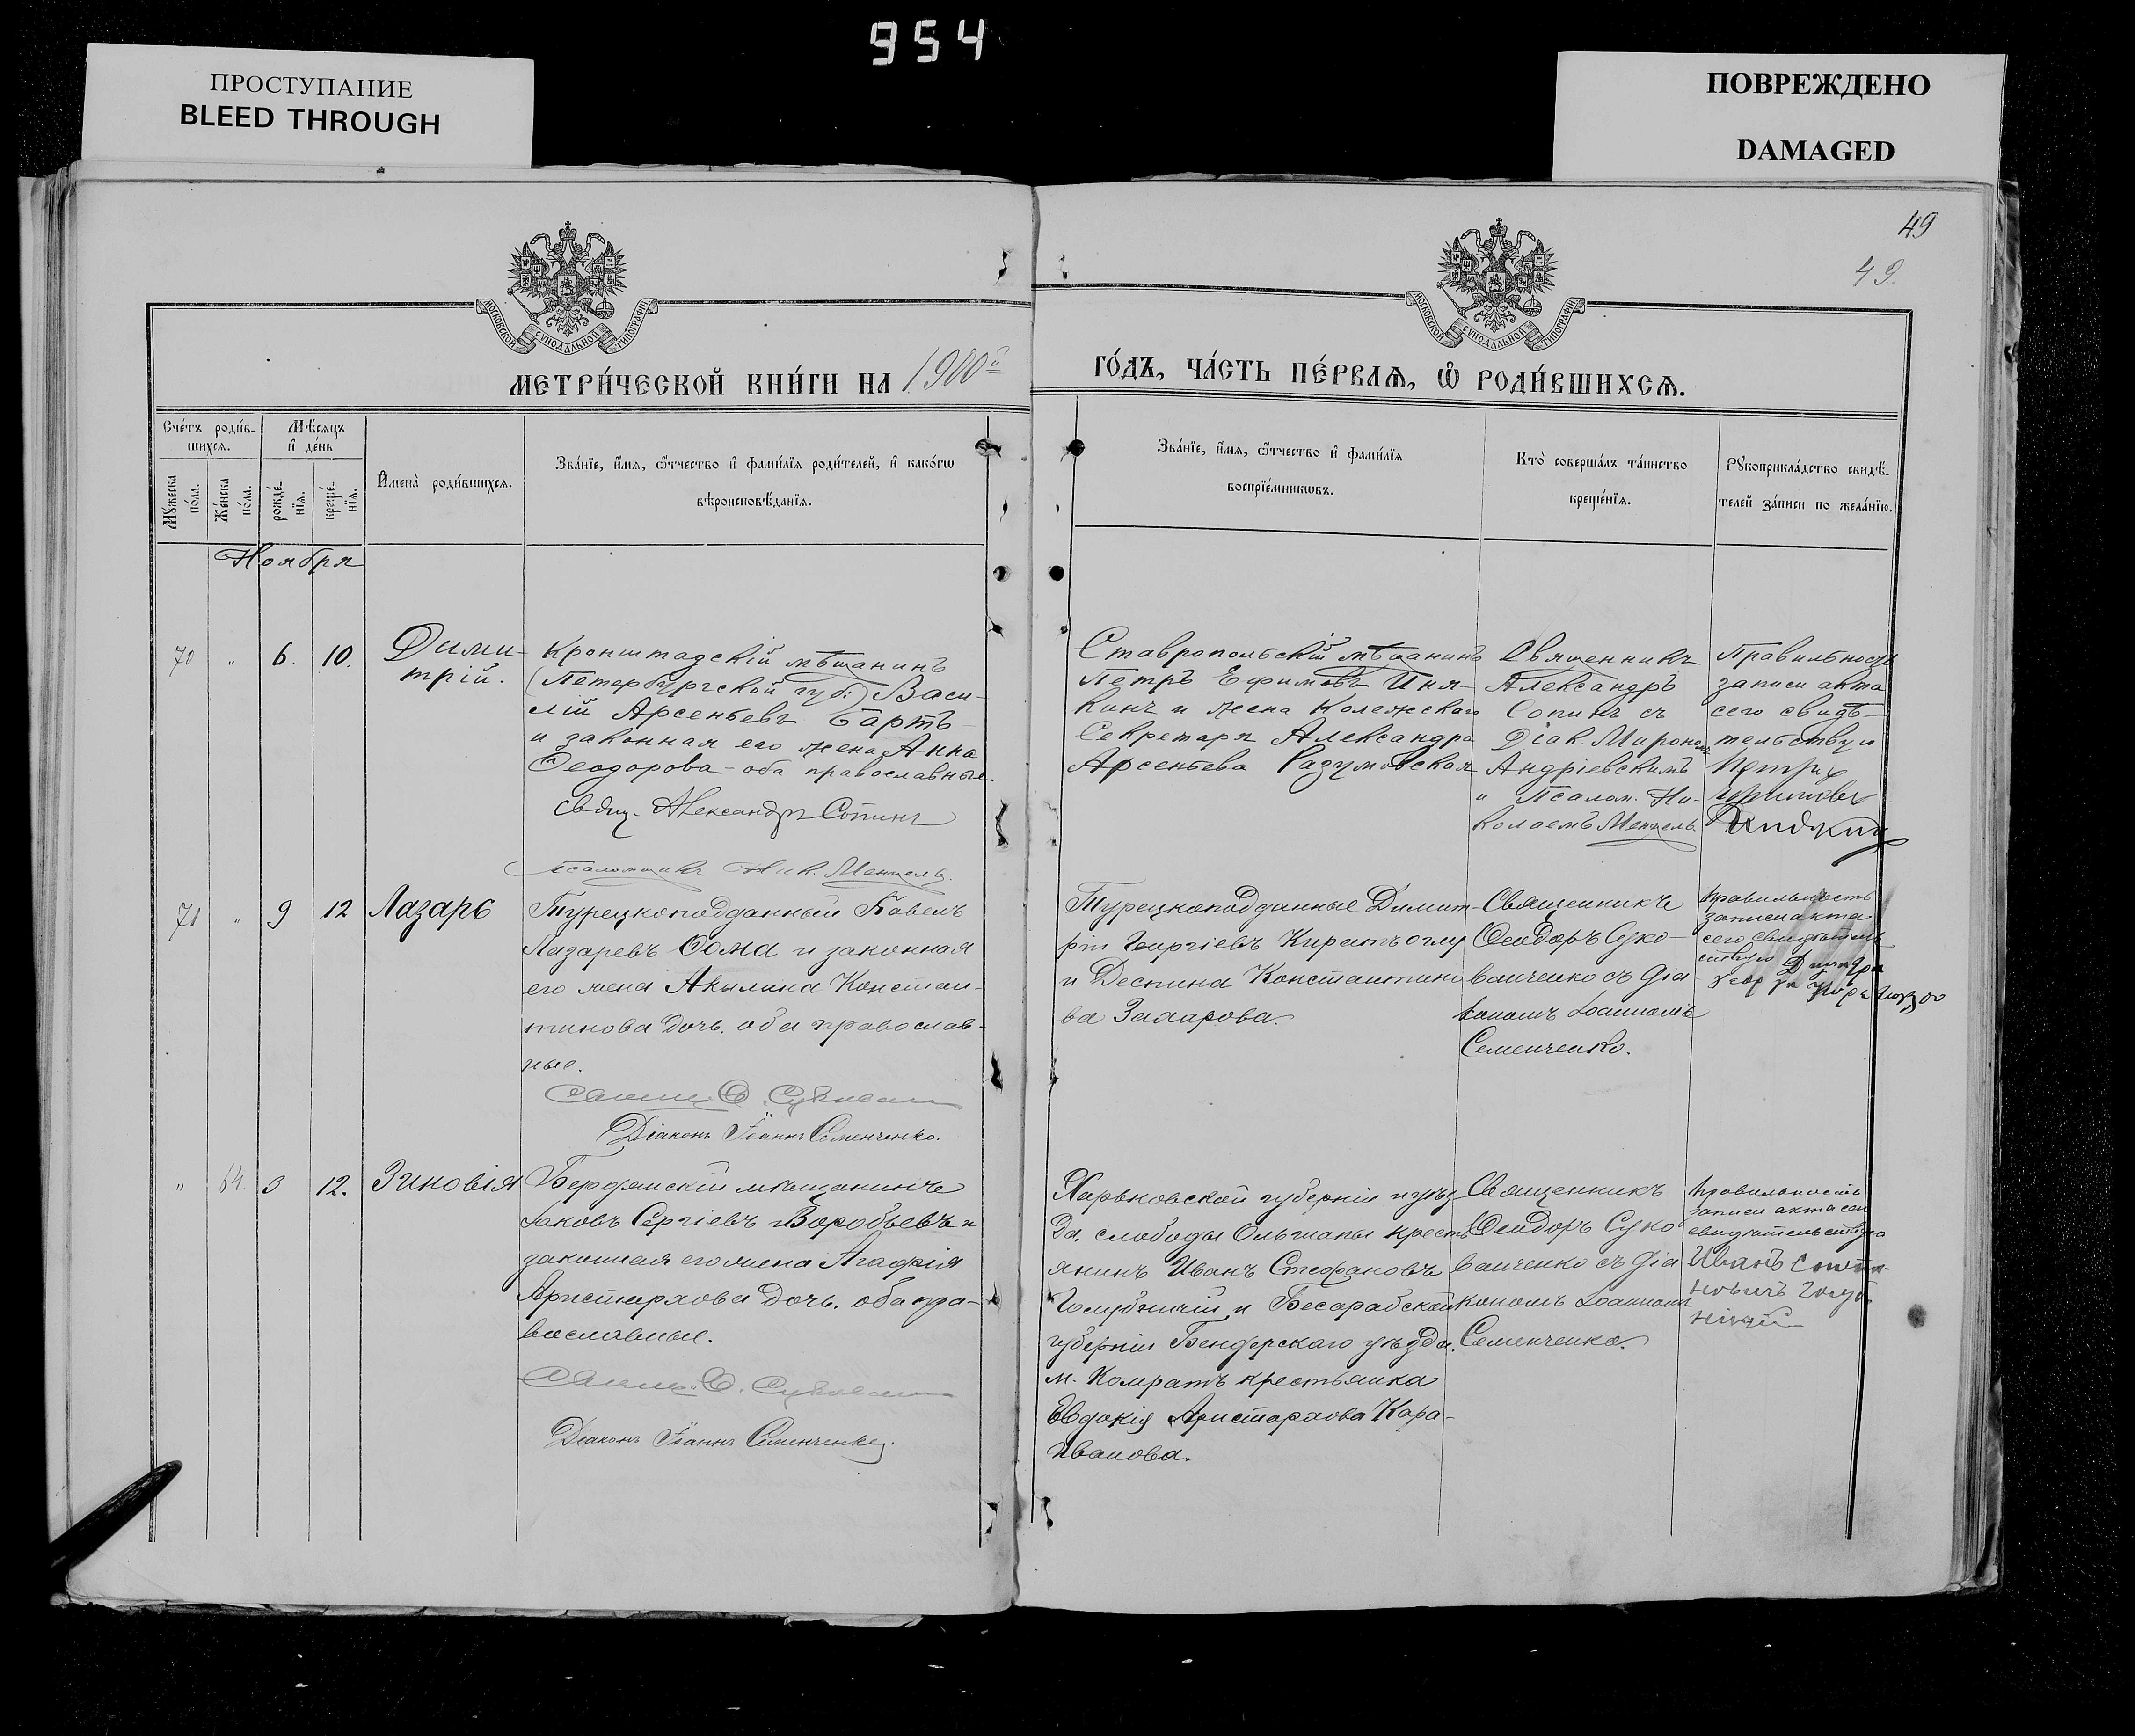 954
ПРОСТУПАНИЕ
BLEED THROUGH
ПОВРЕЖДЕНО
DAMAGED
49
49.
МОСКОВСКОЙ СѴНОДАЛЬНОЙ ТИПОГРАФІИ
МОСКОВСКОЙ СѴНОДАЛЬНОЙ ТИПОГРАФІИ
МЕТРИ́ЧЕСКОЙ КНИ́ГИ НА 1900й
ГО́ДЪ, ЧА́СТЬ ПЕ́РВАѦ, Ѽ РОДИ́ВШИХСѦ.
Сче́тъ роди́в-
шихсѧ.
Мѣсяцъ
и҆ де́нь
Мꙋжеска по́ла.
Же́нска по́ла.
рожде́-нїѧ.
креще́-нїѧ.
И҆мена̀ роди́вшихсѧ.
Зва́нїе, и҆́мѧ, ѻ҆́тчество и҆ фами́лїѧ роди́телей, и҆ како́гѡ
вѣроисповѣ́данїѧ.
Зва́нїе, и҆́мѧ, ѻ҆́тчество и҆ фами́лїѧ
воспрїе́мникѡвъ.
Кто̀ соверша́лъ та́инство
креще́нїѧ.
Рꙋкоприкла́дство свидѣ́-
телей за́писи по жела́нїю.
Ноября
70 " 6. 10.
Дими-
трій.
Кронштадскій мѣщанинъ
(Петербургской губ:) Васи-
лій Арсеньевъ Бартъ
и законная его жена Анна
Ѳеодорова - оба православные.
Свящ. Александръ Сопинъ
Псаломщикъ Ник. Менцель.
Ставропольскій мѣщанинъ
Петръ Ефимовъ Иня-
кинъ и жена Колежскаго
Секретаря Александра
Арсеньева Разумовская
Священникъ
Александръ
Сопинъ съ
Діак. Мирономъ
Андріевскимъ
и Псалом. Ни-
колаемъ Менцель.
Правильность
записи акта
сего свидѣ-
тельствую
71 " 9 12
Лазарь
Турецкоподданный Павелъ
Лазаревъ Сома и законная
его жена Акылина Констан-
тинова дочь. оба православ-
ные.
Свящ. Ѳ. Сукован
Діаконъ Іоаннъ Семенченко.
Турецкоподданные Димит-
рій Георгіевъ Кирать оглу
и Деспина Константино
ва Захарова.
Священникъ
Ѳеодоръ Суко-
ванченко съ діа
кономъ Іоанномъ
Семенченко.
Правильность
записи акта
сего свидѣтель
ствую
" 64. 3 12.
Зиновія
Бердянскій мѣщанинъ
Іаковъ Сергіевъ Воробьевъ и
законная его жена Агафія
Аристархова дочь. оба пра-
вославные.
Свящ. Ѳ. Сукован
Діаконъ Іоаннъ Семенченко.
Харьковской губерніи и уѣз
да. слободы Ольшаны кресть
янинъ Иванъ Стефановъ
Голубничій и Бесарабской
губерніи Бендерскаго уѣзда.
м. Комратъ крестьянка
Евдокія Аристархова Кара-
Иванова.
Священникъ
Ѳеодоръ Суко
ванченко съ діа
кономъ Іоанномъ
Семенченко.
Правильность
записи акта сего
свидѣтельствую
Иванъ